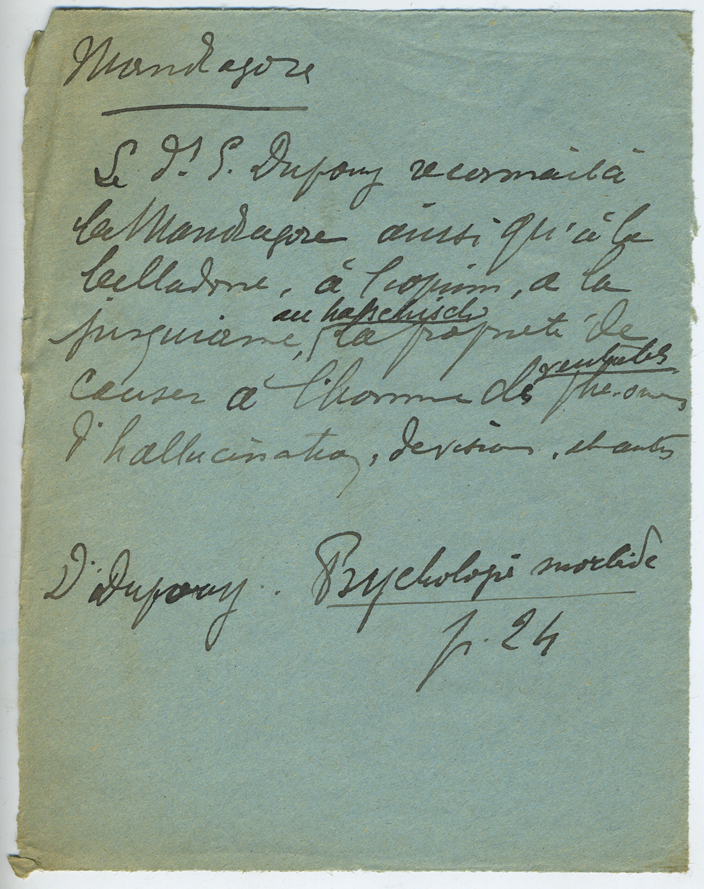 Mandragore
Le Dr E. Dupouy reconnait à
la Mandragore ainsi qu'à la
belladone, à l'opium, à la
jusquiame, au haschisch la propriété de
causer à l'homme des phénom
d'hallucination, de vision, et autres
Dr Dupouy. Psychologie morbide
p. 24